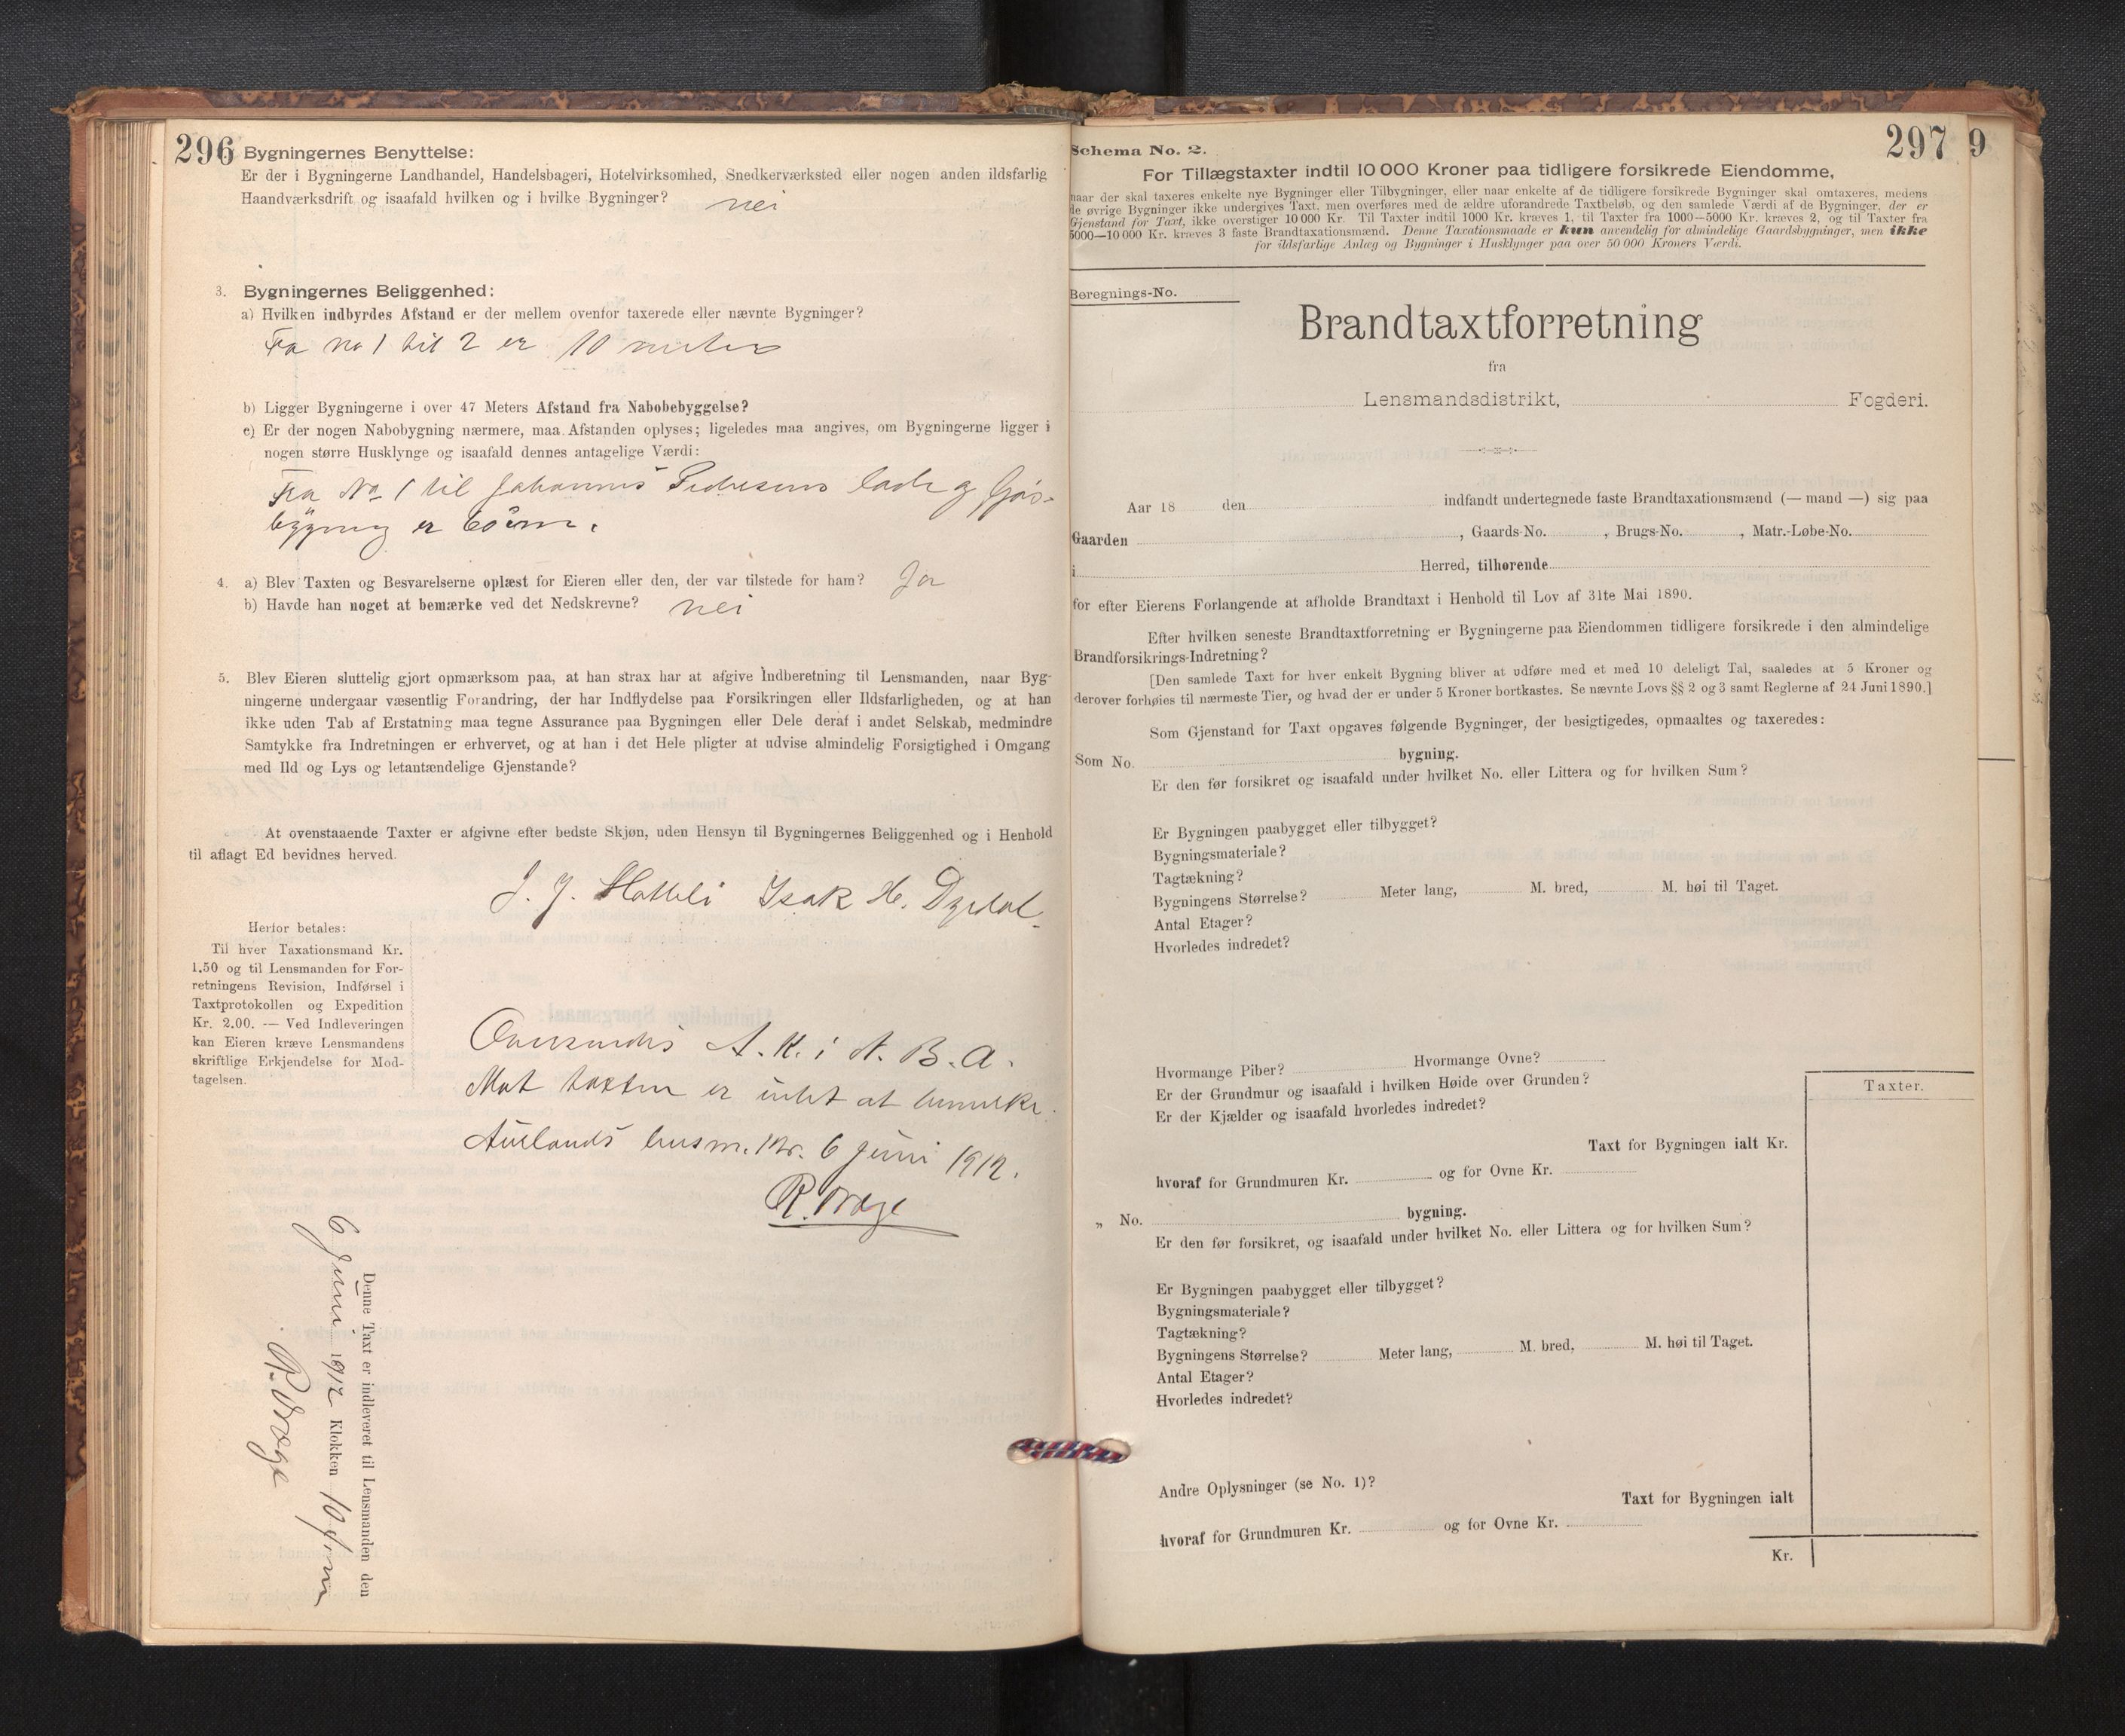 296
Bygningernes Benyttelse:
Er der i Bygningerne Landhandel, Handelsbageri, Hotelvirksomhed, Snedkerværksted eller nogen anden ildsfarlig
Haandværksdrift og isaafald hvilken og i hvilke Bygninger? nei
3. Bygningernes Beliggenhed:
a) Hvilken indbyrdes Afstand er der mellem ovenfor taxerede eller nævnte Bygninger?
Fra no 1 til 2 er 10 meter
b) Ligger Bygningerne i over 47 Meters Afstand fra Nabobebyggelse?
c) Er der nogen Nabobygning nærmere, maa Afstanden oplyses; ligeledes maa angives, om Bygningerne ligger i
nogen større Husklynge og isaafald dennes antagelige Værdi:
Fra No 1 til Johannes Pedersens lade og
bygning er 60 m.
4. a) Blev Taxten og Besvarelserne oplæst for Eieren eller den, der var tilstede for ham? Ja
b) Havde han noget at bemærke ved det Nedskrevne? nei
5. Blev Eieren sluttelig gjort opmærksom paa, at han strax har at afgive Indberetning til Lensmanden, naar Byg-
ningerne undergaar væsentlig Forandring, der har Indflydelse paa Forsikringen eller Ildsfarligheden, og at han
ikke uden Tab af Erstatning maa tegne Assurance paa Bygningen eller Dele deraf i andet Selskab, medmindre
Samtykke fra Indretningen er erhvervet, og at han i det Hele pligter at udvise almindelig Forsigtighed i Omgang
med Ild og Lys og letantændelige Gjenstande?
At ovenstaaende Taxter er afgivne efter bedste Skjøn, uden Hensyn til Bygningernes Beliggenhed og i Henhold
til aflagt Ed bevidnes herved.
J. J. Isak H. Dyrdal
Herfor betales:
Til hver Taxationsmand Kr.
1.50 og til Lensmanden for For-
retningens Revision, Indførsel i
Taxtprotokollen og Expedition
Kr. 2.00. — Ved Indleveringen
kan Eieren kræve Lensmandens
skriftlige Erkjendelse for Mod-
tagelsen.
Oversendes A. K. i N. B. A.
Mot taxten er intet at bemerke.
Aurlands lensm.ktr. 6 juni 1912.
R. Wræge
Denne Taxt er indleveret til Lensmanden den
6 juni 1912 Klokken 10 f.m
R. Wræge
297 9
Schema No. 2.
For Tillægstaxter indtil 10 000 Kroner paa tidligere forsikrede Eiendomme,
naar der skal taxeres enkelte nye Bygninger eller Tilbygninger, eller naar enkelte af de tidligere forsikrede Bygninger skal omtaxeres, medens
de øvrige Bygninger ikke undergives Taxt, men overføres med de ældre uforandrede Taxtbeløb, og den samlede Værdi af de Bygninger, der er
Gjenstand for Taxt, ikke overstiger 10 000 Kr. Til Taxter indtil 1000 Kr. kræves 1, til Taxter fra 1000—5000 Kr. kræves 2, og til Taxter fra
5000—10 000 Kr. kræves 3 faste Brandtaxationsmænd. Denne Taxationsmaade er kun anvendelig for almindelige Gaardsbygninger, men ikke
for ildsfarlige Anlæg og Bygninger i Husklynger paa over 50 000 Kroners Værdi.
Beregnings-No.
Brandtaxtforretning
fra
Lensmandsdistrikt, Fogderi.
Aar 18 den indfandt undertegnede faste Brandtaxationsmænd (— mand —) sig paa
Gaarden , Gaards-No. , Brugs-No. , Matr.-Løbe-No.
i Herred, tilhørende
for efter Eierens Forlangende at afholde Brandtaxt i Henhold til Lov af 31te Mai 1890.
Efter hvilken seneste Brandtaxtforretning er Bygningerne paa Eiendommen tidligere forsikrede i den almindelige
Brandforsikrings-Indretning?
[Den samlede Taxt for hver enkelt Bygning bliver at udføre med et med 10 deleligt Tal, saaledes at 5 Kroner og
derover forhøies til nærmeste Tier, og hvad der er under 5 Kroner bortkastes. Se nævnte Lovs §§ 2 og 3 samt Reglerne af 24 Juni 1890.]
Som Gjenstand for Taxt opgaves følgende Bygninger, der besigtigedes, opmaaltes og taxeredes:
Som No. bygning.
Er den før forsikret og isaafald under hvilket No. eller Littera og for hvilken Sum?
Er Bygningen paabygget eller tilbygget?
Bygningsmateriale?
Tagtækning?
Bygningens Størrelse? Meter lang, M. bred, M. høi til Taget.
Antal Etager?
Hvorledes indredet?
Hvormange Piber? Hvormange Ovne?
Er der Grundmur og isaafald i hvilken Høide over Grunden?
Er der Kjælder og isaafald hvorledes indredet?
Taxter.
Taxt for Bygningen ialt Kr.
hvoraf for Grundmuren Kr. og for Ovne Kr.
„ No. bygning.
Er den før forsikret, og isaafald under hvilket No. eller Littera og for hvilken Sum?
Er Bygningen paabygget eller tilbygget?
Bygningsmateriale?
Tagtækning?
Bygningens Størrelse? Meter lang, M. bred, M. høi til Taget.
Antal Etager?
Hvorledes indredet?
Andre Oplysninger (se No. 1)?
Taxt for Bygningen ialt
hvoraf for Grundmuren Kr. og for Ovne Kr.
Kr.